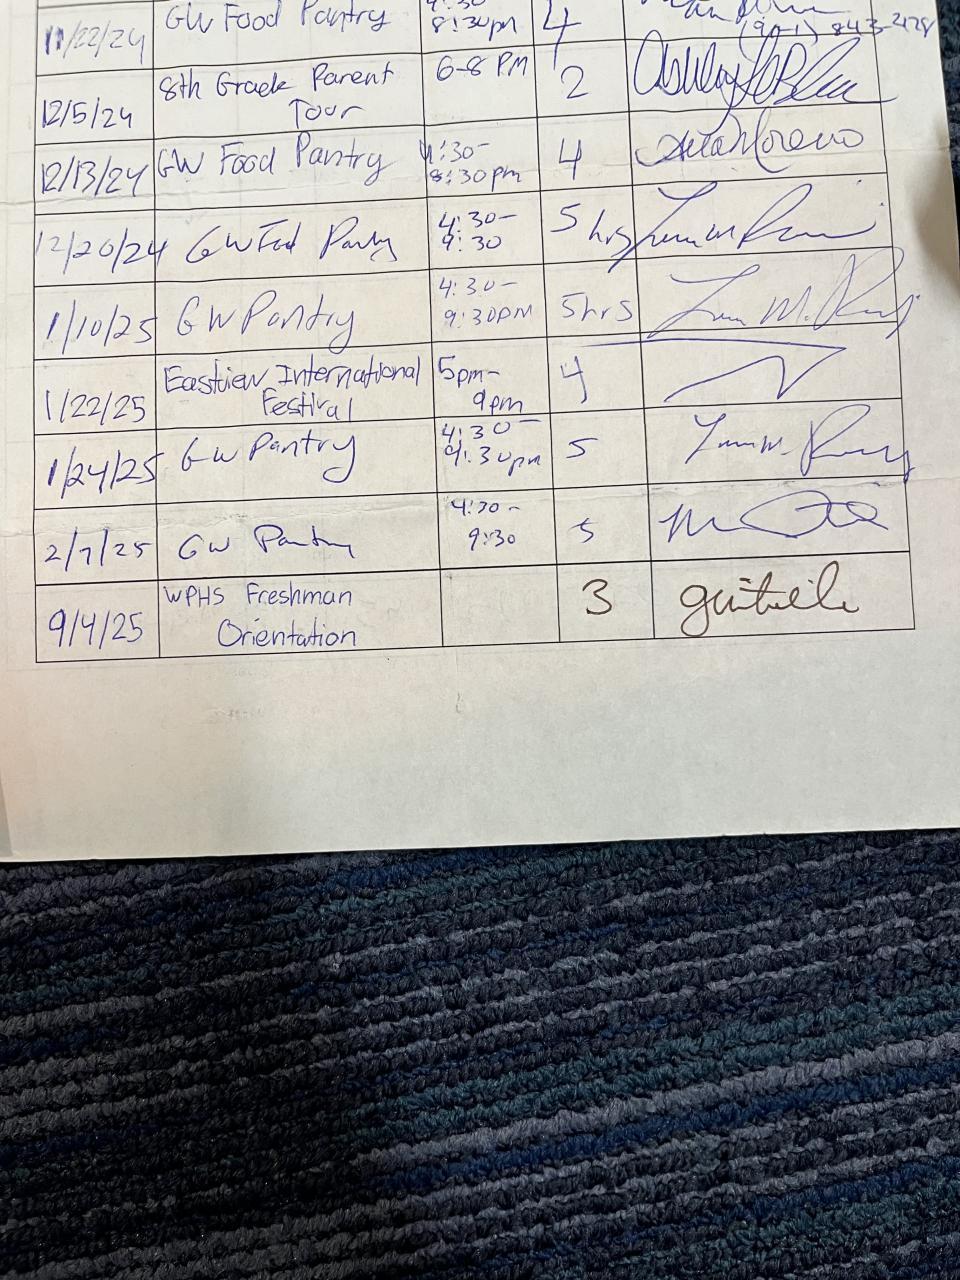 11/22/24 GW Food Pantry 4:30
8:30pm 4
(901) 843-2178
12/5/24 8th Grade Parent
Tour 6-8 PM 2
12/13/24 GW Food Pantry 4:30-
8:30pm 4 Moreno
12/20/24 GW Food Pantry 4:30-
9:30 5 hrs
1/10/25 GW Pantry 4:30-
9:30PM 5hrs
1/22/25 Eastview International
Festival 5pm-
9pm 4
1/24/25 GW Pantry 4:30-
9:30pm 5
2/7/25 GW Pantry 4:30-
9:30 5
9/4/25 WPHS Freshman
Orientation 3